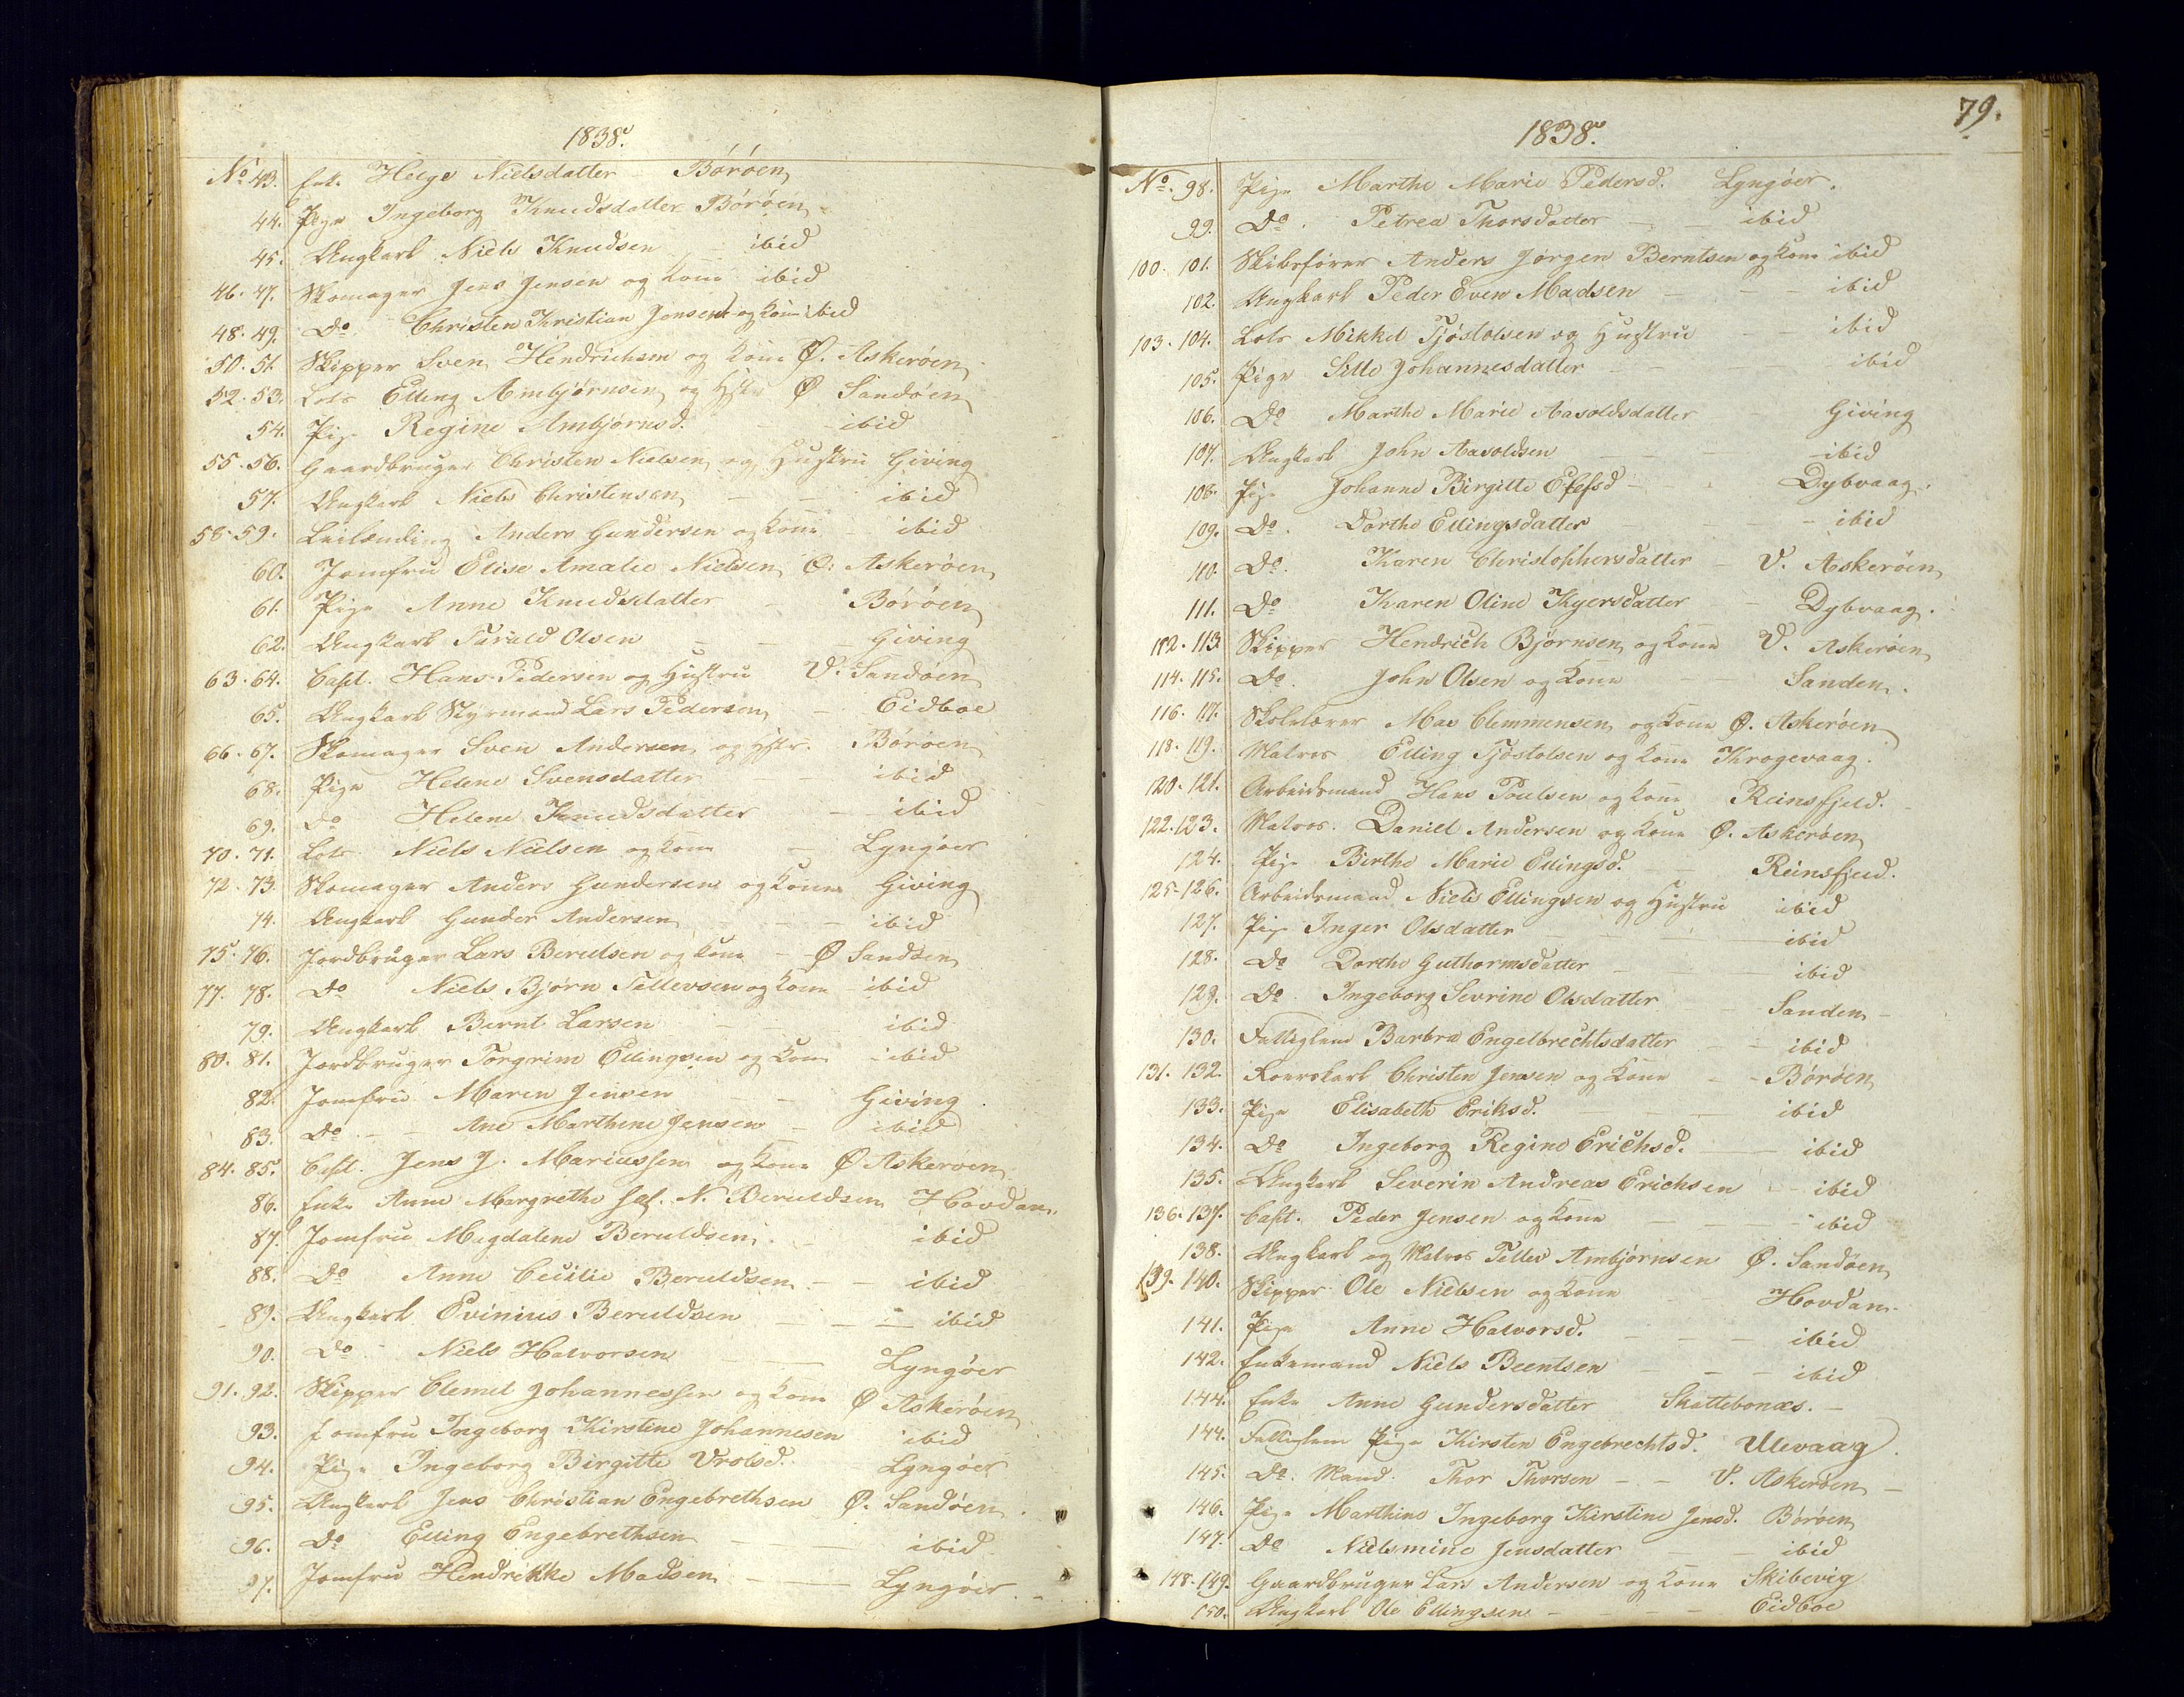 1838.
No 43. Enke Helge Nielsdatter Børøen
44. Pige Ingeborg Knudsdatter Børøen
45. Ungkarl Niels Knudsen ibid
46. 47. Skomager Jens Jensen og Kone ibid
48. 49. Do Christen Kristian Jensen og Kone ibid
50. 51. Skipper Sven Hendrichsen og Kone Ø. Askerøen
52. 53. Lots Elling Ambjørnsen og Hstr Ø Sandøen
54. Pige Regine Ambjørnsd. ibid
55. 56. Gaardbruger Christen Nielsen og Hustru Giving
57. Ungkarl Niels Christensen ibid
58. 59. Leilænding Anders Gundersen og Kone ibid
60. Jomfru Elise Amalie Nielsen Ø. Askerøen
61. Pige Anne Knudsdatter Børøen
62. Ungkarl Tarald Olsen Giving
63. 64. Capt. Hans Pedersen og Hustru V. Sandøen
65. Ungkarl Styrmand Lars Pedersen Eidboe
66. 67. Skomager Sven Andersen og Hstr. Børøen
68. Pige Helene Svensdatter ibid
69. Do Helene Knudsdatter ibid
70. 71. Lots Niels Nielsen og Kone Lyngøer
72. 73. Skomager Anders Gundersen og Kone Giving
74. Ungkarl Gunder Andersen ibid
75. 76. Jordbruger Lars Berulsen og Kone Ø Sandøen
77. 78. Do Niels Bjørn Tellevsen og Kone ibid
79. Ungkarl Bernt Larsen ibid
80. 81. Jordbruger Torgrim Ellingsen og Kone ibid
82. Jomfru Maren Jensen Giving
83. Do Ane Marthine Jensen ibid
84. 85. Capt. Jens J. Mariussen og Kone Ø Askerøen
86. Enke Anne Margrethe sal. N. Beruldsen Hovdan
87. Jomfru Magdalene Beruldsen ibid
88. Do Anne Cecilie Beruldsen ibid
89. Ungkarl Evinius Beruldsen ibid
90. Do Niels Halvorsen Lyngøer
91. 92. Skipper Clemet Johannessen og Kone Ø Askerøen
93. Jomfru Ingeborg Kirstine Johannesen ibid
94. Pige Ingeborg Birgitte Vrolsd. Lyngøer
95. Ungkarl Jens Christian Engebrethsen Ø. Sandøen
96. Do Elling Engebrethsen ibid
97. Jomfru Hendrikke Madsen Lyngøer
79.
1838.
No. 98. Pige Marthe Marie Pedersd. Lyngøer.
99. Do. Petrea Thorsdatter ibid
100. 101. Skibsfører Anders Jørgen Berntsen og Kone ibid
102. Ungkarl Peder Even Madsen ibid
103. 104. Lots Mikkel Tjøstolsen og Hustru ibid
105. Pige Sille Johannesdatter ibid
106. Do Marthe Marie Aavoldsdatter Giving
107. Ungkarl John Aavoldsen ibid
108. Pige Johanne Birgitte Dybvaag.
109. Do. Dorthe Ellingsdatter ibid
110. Do. Karen Christophersdatter V. Askerøen
111. Do Karen Oline Kyersdatter Dybvaag.
112. 113 Skipper Hendrich Bjørnsen og Kone V. Askerøen
114. 115. Do. John Olsen og Kone Sanden.
116. 117. Skolelærer Mas Clemmensen og Kone Ø. Askerøen
118. 119. Matros Elling Tjøstolsen og Kone Krogevaag.
120. 121. Arbeidsmand Hans Poulsen og Kone Reinsfjeld.
122. 123. Matros. Daniel Andersen og Kone Ø. Askerøen
124. Pige Birthe Marie Ellingsd. Reinsfjeld.
125-126. Arbeidsmand Niels Ellingsen og Hustru ibid
127. Pige Inger Olsdatter ibid
128. Do Dorthe Guthormsdatter ibid
129. Do. Ingeborg Sevrine Olsdatter Sanden
130. Fattiglem Barbra Engelbrechtsdatter ibid
131. 132. Roerskarl Christen Jensen og Kone Børøen
133. Pige Elisabeth Eriksd. ibid
134. Do Ingeborg Regine Erichsd. ibid
135. Ungkarl Severin Andreas Erichsen ibid
136. 137. Capt. Peder Jensen og Kone ibid
138. Ungkarl og Matros Tellev Ambjørnsen Ø. Sandøen
139. 140. Skipper Ole Nielsen og Kone Hovdan.
141. Pige Anne Halvorsd. ibid
142. Enkemand Niels Beentsen ibid
144. Enke Anne Gundersdatter Skattebonæs.
144. Fattiglem Pige Kirsten Engebrechtsd. Ulevaag.
145. Do. Mand. Thor Thorsen V. Askerøen
146. Pige Marthine Ingeborg Kirstine Jensd. Børøen
147. Do Nielsmine Jensdatter ibid
148. 149. Gaardbruger Lars Andersen og Kone Skibevig
150. Ungkarl Ole Ellingsen Eidboe